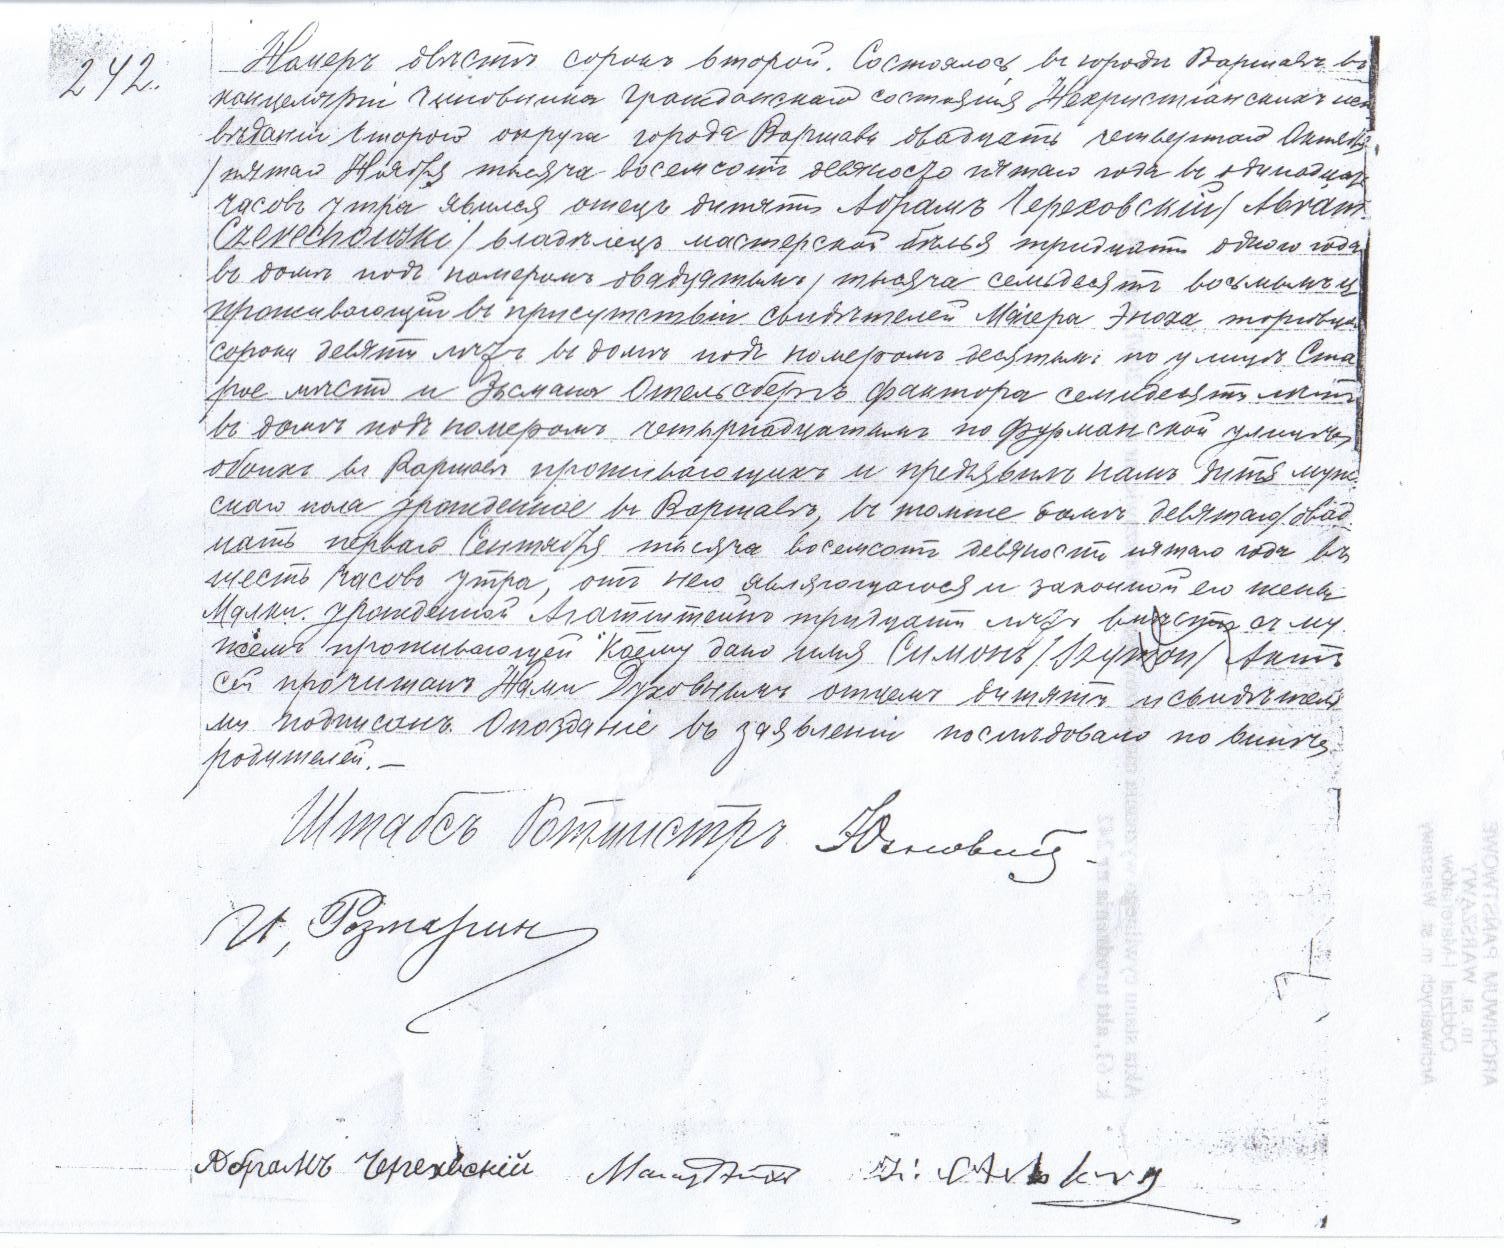 242.
Номеръ двѣсти сорокъ второй. Состоялось въ городѣ Варшавѣ въ
канцеляріи Чиновника Гражданскаго состоянія Нехристіанскихъ испо
вѣданій второго округа города Варшавы двадцать четвертаго Октября
/пятаго Ноября тысяча восемсотъ девяносто пятаго года въ одинадцать
часовъ утра явился отецъ дитяти Абрамъ Череховскій /Abram
Czerechowski/ владѣлецъ мастерской бѣлья тридцати одного года
въ домѣ подъ номеромъ двадцатымъ /тысяча семьдесятъ восьмымъ
проживающій въ присутствіи свидѣтелей Маера Эноха торговца
сорока девяти лѣтъ въ домѣ подъ номеромъ десятымъ по улицѣ Ста
рое мѣсто и Зысмана фактора семидесяти лѣтъ
въ домѣ подъ номеромъ четырнадцатымъ по Фурманской улицѣ,
обоихъ въ Варшавѣ проживающихъ и предъявилъ намъ дитя муж
скаго пола урожденное въ Варшавѣ, въ томже домѣ девятаго/двад
цать перваго Сентября тысяча восемсотъ девяносто пятаго года въ
шесть часовъ утра, отъ него являющагося и законной его жены
Малки урожденной тридцати лѣтъ вмѣстѣ съ му
жемъ проживающей Коему дано имя Симонъ /Szymon/ Актъ
сей прочитанъ Нами Духовнымъ отцемъ дитяти и свидѣтеля
ми подписанъ. Опозданіе въ заявленіи послѣдовало по винѣ
родителей.—
Штабсъ Ротмистръ
И, Розмаринъ
Абрамъ Череховскій
ARCHIWUM PAŃSTWOWE
m. st. WARSZAWY
Oddział I Materiałów
Archiwalnych m. st. Warszawy